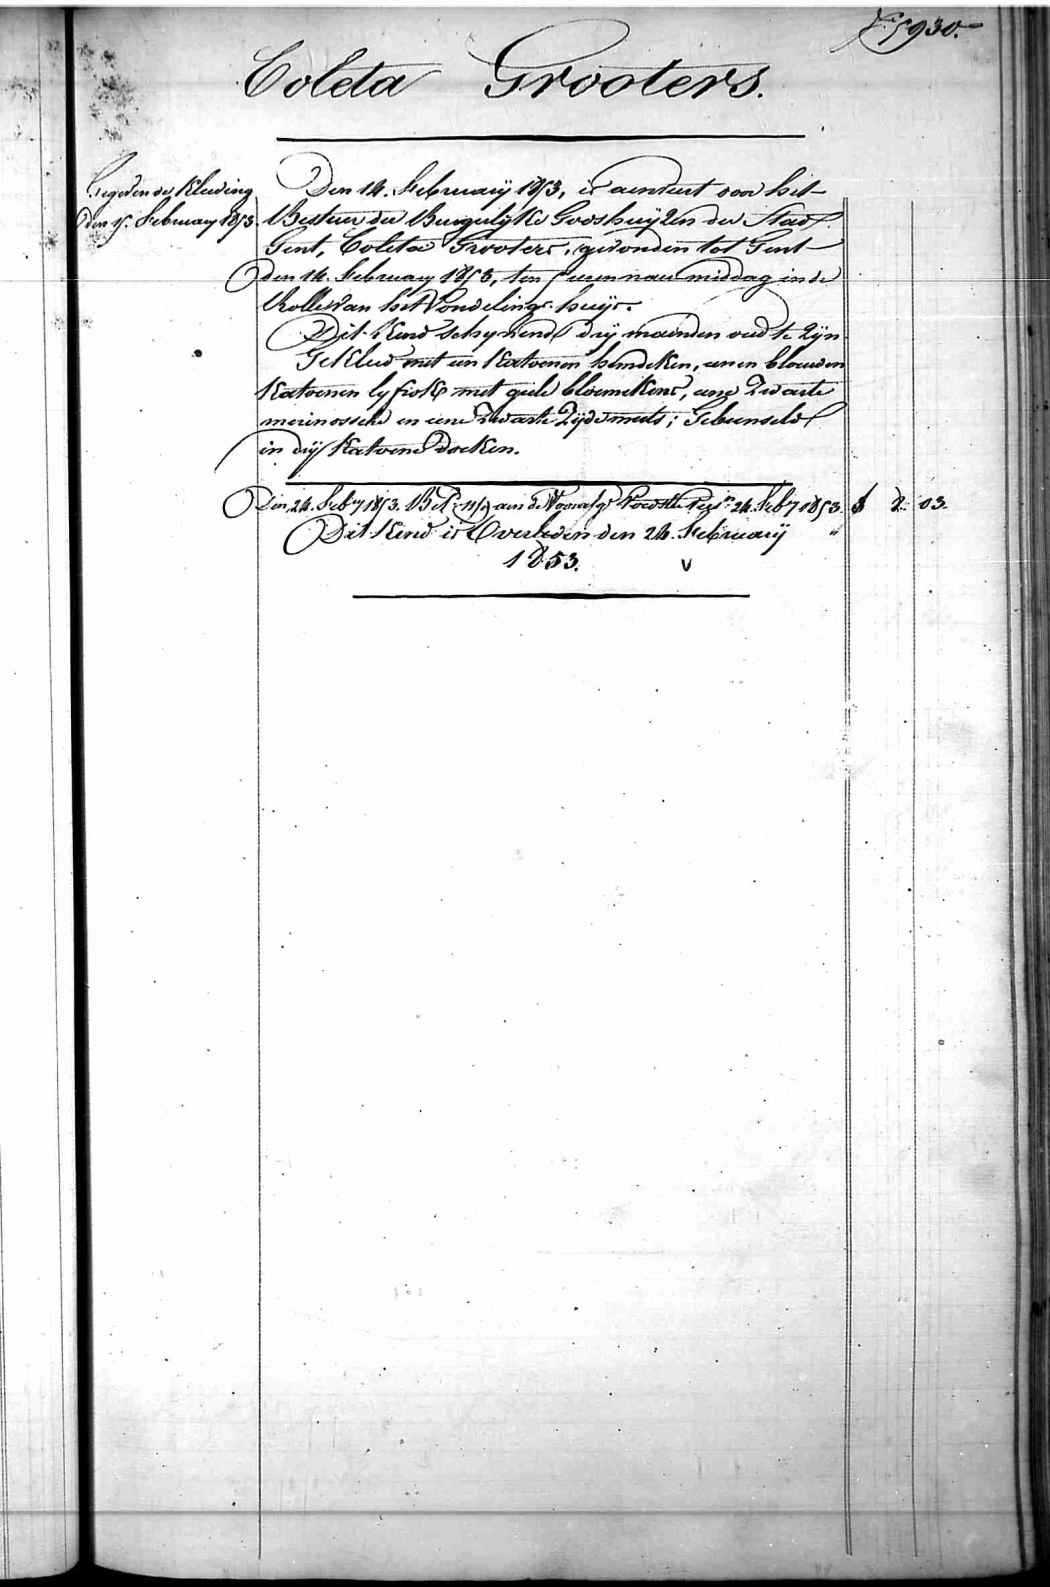 5930.
Coleta Grooters.
Gegeven de Kleeding
den 15. February 1853.
Den 14. Februarij 1853, is aenveert voor het
Bestuer der Burgerlyke Godshuyzen der Stad
Gent, Coleta Grooters, gevonden tot Gent
den 14. February 1853, ten 5 uren naermiddag in de
Rolle van het Vondelings-huijs.
Dit Kind schynende drij maenden oud te zijn
Gekleed met een Katoenen hemdeken, eenen blauwen
Katoenen lyfrok met geele bloemekens, eene Zwarte
merinossche en eene Zwarte Zijde muts; Gebunseld
in dij Katoene doeken.
Den 24. Feb.y 1853. Bet. aen de 24. Feb.y 1853. 2. 03.
Dit Kind is Overleden den 24. Februarij "
1853. v